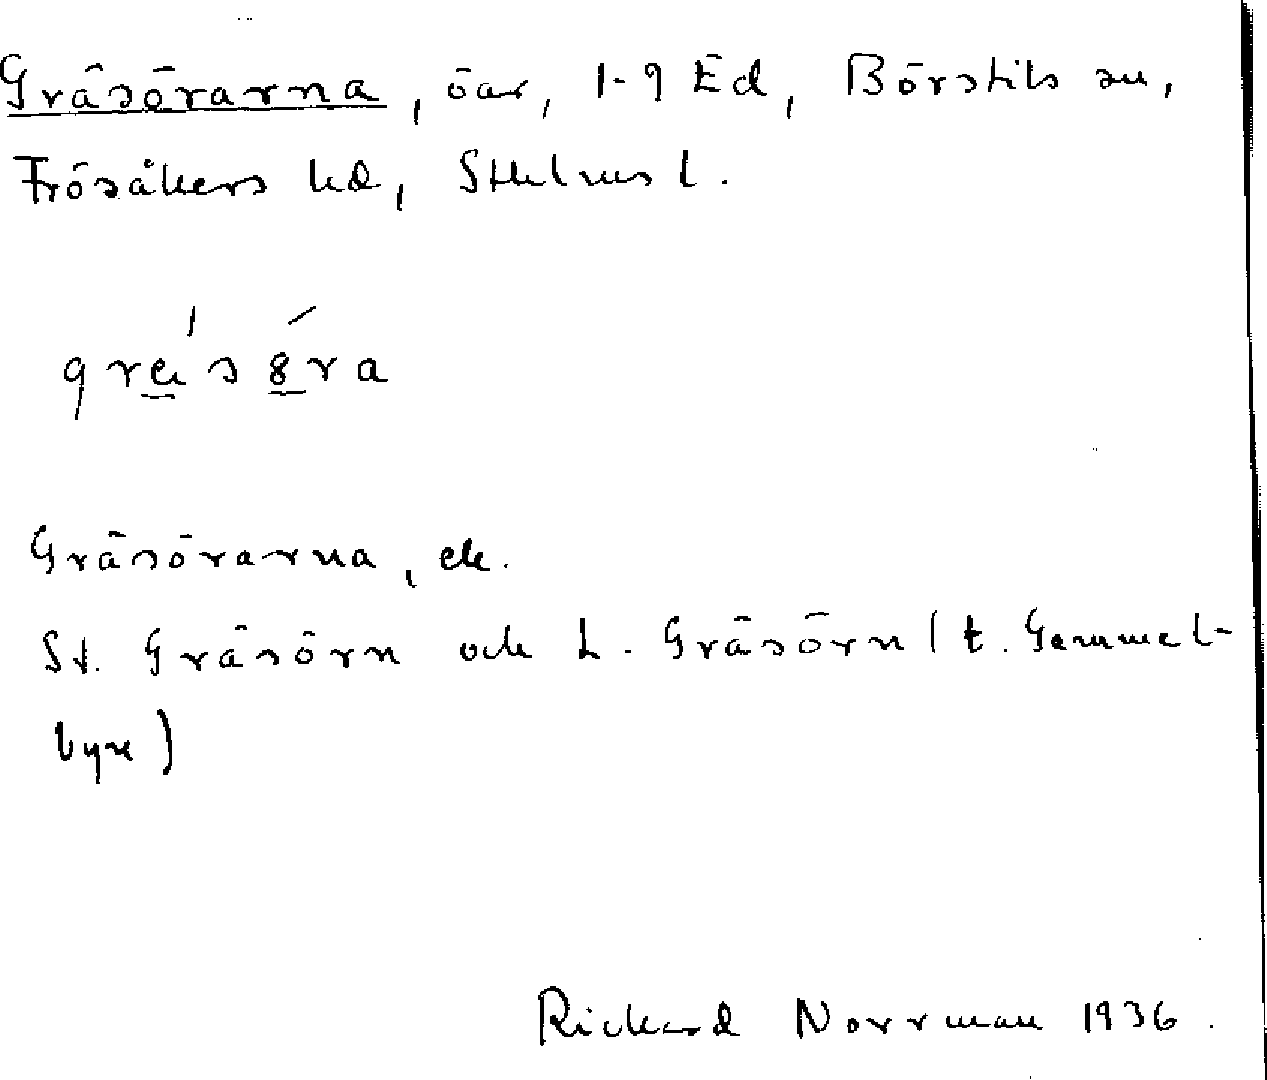 Gräsörarna, öar, 1-9 Ed, Börstils sn,
Frösåkers hd, Sthlms l.
Gräsörarna, ek.
St. Gräsörn och L. Gräsörn (t. Gammel-
byn)
Rickard Norrman 1936.